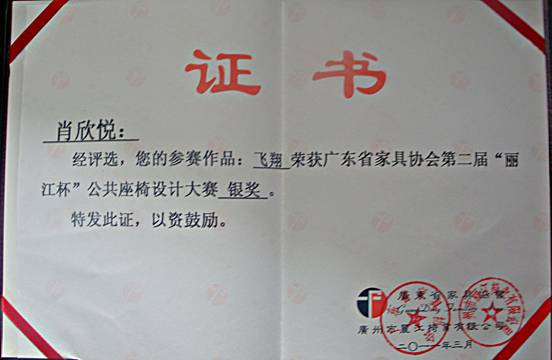 证书
肖欣悦：
经评选，您的参赛作品：飞翔 荣获广东省家具协会第二届“丽
江杯”公共座椅设计大赛 银奖 。
特发此证，以资鼓励。
廣東省家具協會
二〇一一年三月